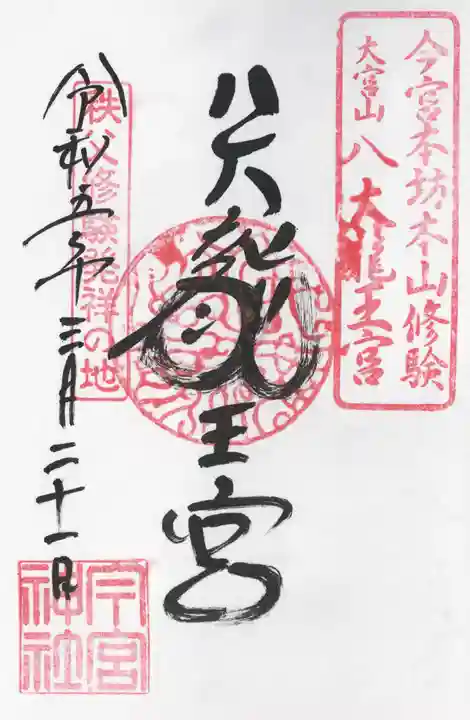 今宮本坊本山修験
大宮山八大龍王宮
八大龍王宮
秩父修験発祥の地
令和五年三月二十一日
今宮神社